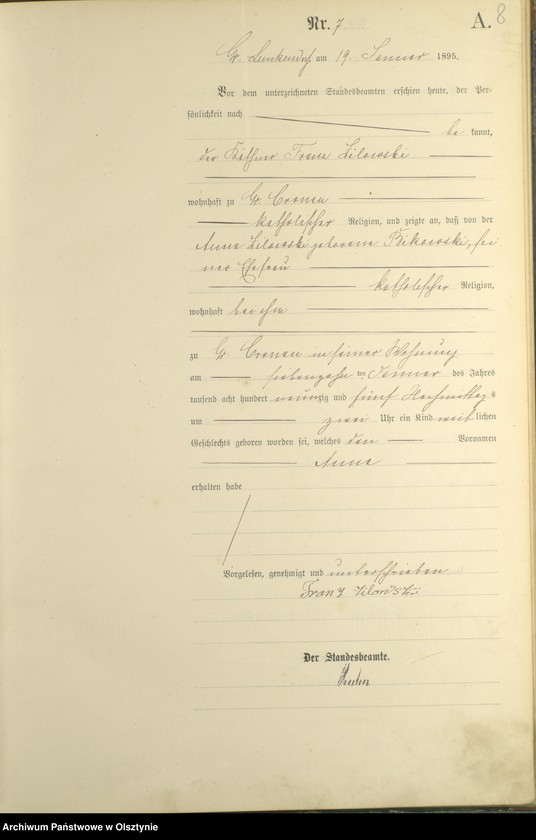 Nr. 7
A. 8
Gr. am 19. Januar 1895.
Vor dem unterzeichneten Standesbeamten erschien heute, der Per-
sönlichkeit nach
be kannt,
der Käthner Franz
wohnhaft zu Gr. Cronau
katholischer Religion, und zeigte an, daß von der
Anna geborene sei
ner Ehefrau
katholischer Religion,
wohnhaft bei ihm
zu Gr. Cronau in seiner Wohnung
am siebenzehn ten Januar des Jahres
tausend acht hundert neunzig und fünf Nachmittag s
um zwei Uhr ein Kind weib lichen
Geschlechts geboren worden sei, welches den Vornamen
Anna
erhalten habe
Vorgelesen, genehmigt und unterschrieben
Franz
Der Standesbeamte.
Archiwum Państwowe w Olsztynie